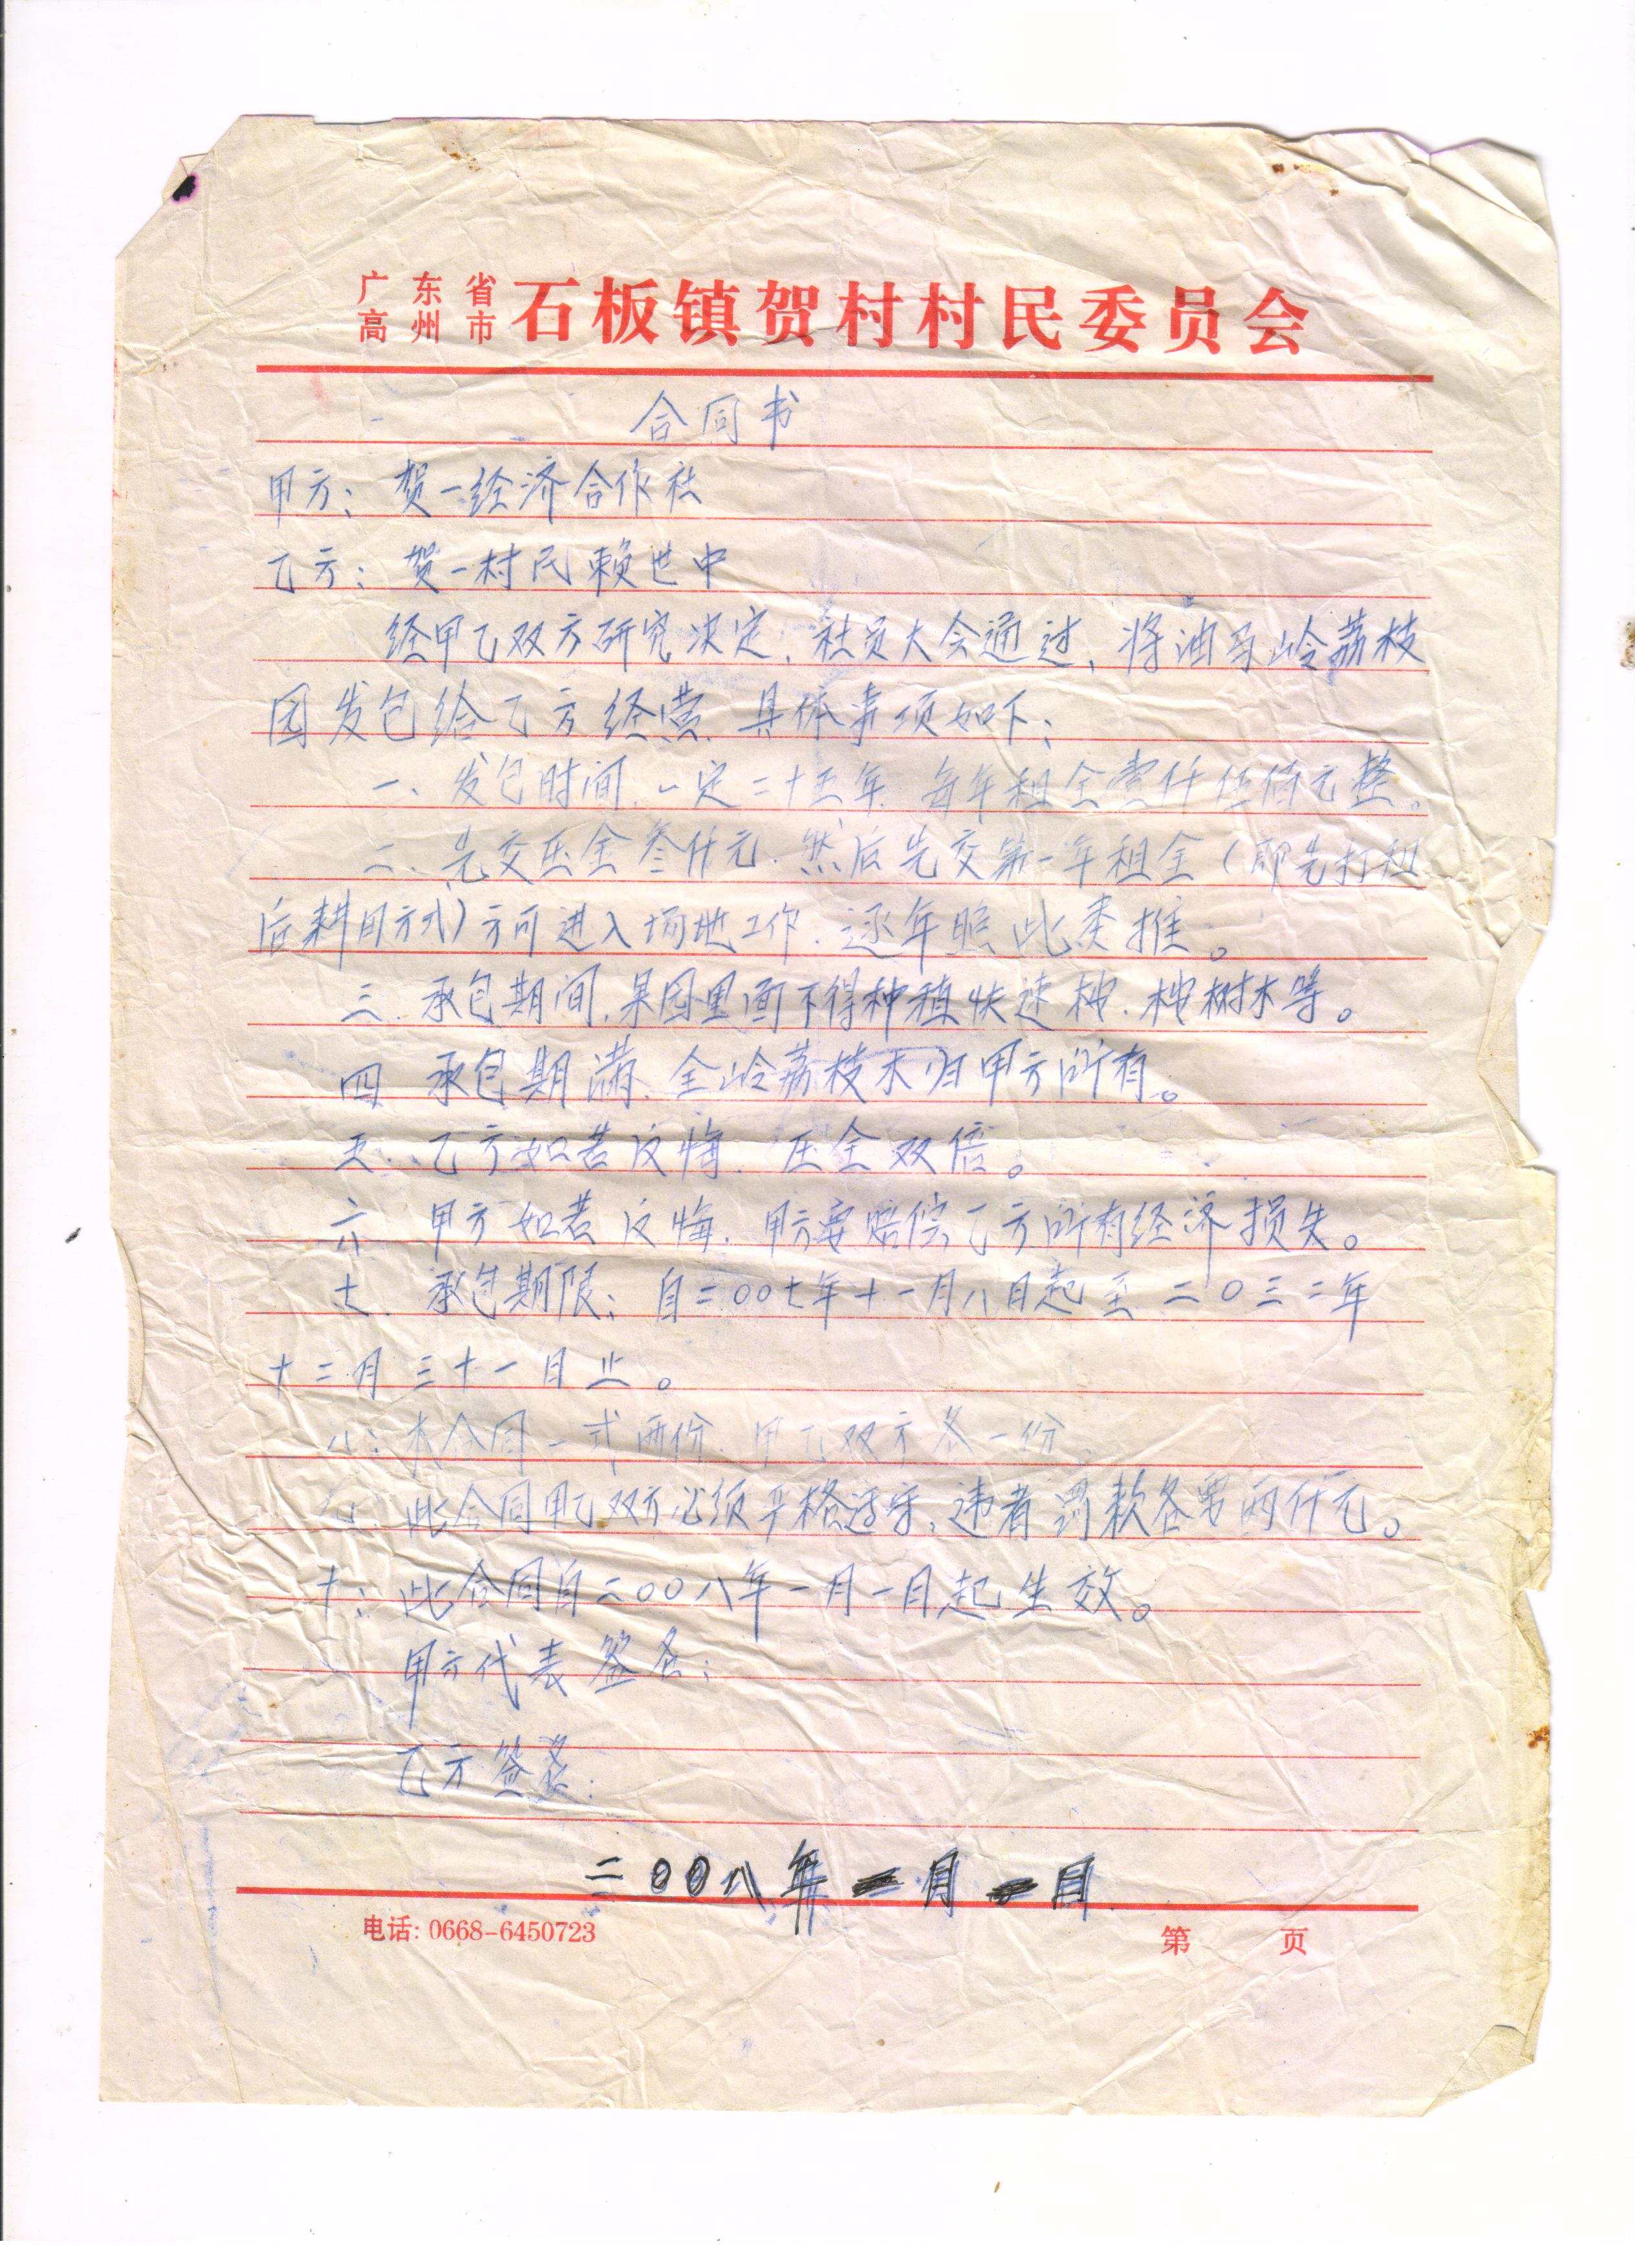 广东省
高州市 石板镇贺村村民委员会
合同书
甲方：贺一经济合作社
乙方：贺一村民赖世中
经甲乙双方研究决定、社员大会通过、将油马岭荔枝
园发包给乙方经营、具体事项如下：
一、发包时间、一定二十五年、每年租金壹仟伍佰元整。
二、先交压金叁仟元、然后先交第一年租金（即先打租
后耕田方式）方可进入场地工作、逐年照此类推。
三、承包期间、果园里面不得种植快速桉、桉树木等。
四、承包期满、全岭荔枝木归甲方所有。
五、乙方如若反悔、压金双倍。
六、甲方如若反悔、甲方要赔偿乙方所有经济损失。
七、承包期限：自二00七年十一月八日起至二0三二年
十二月三十一日止。
八：本合同一式两份、甲乙双方各一份。
九：此合同甲乙双方必须严格遵守、违者罚款各 两仟元。
十：此合同自二00八年一月一日起生效。
甲方代表签名：
乙方签名：
二00八年一月一日
电话: 0668-6450723 第 页